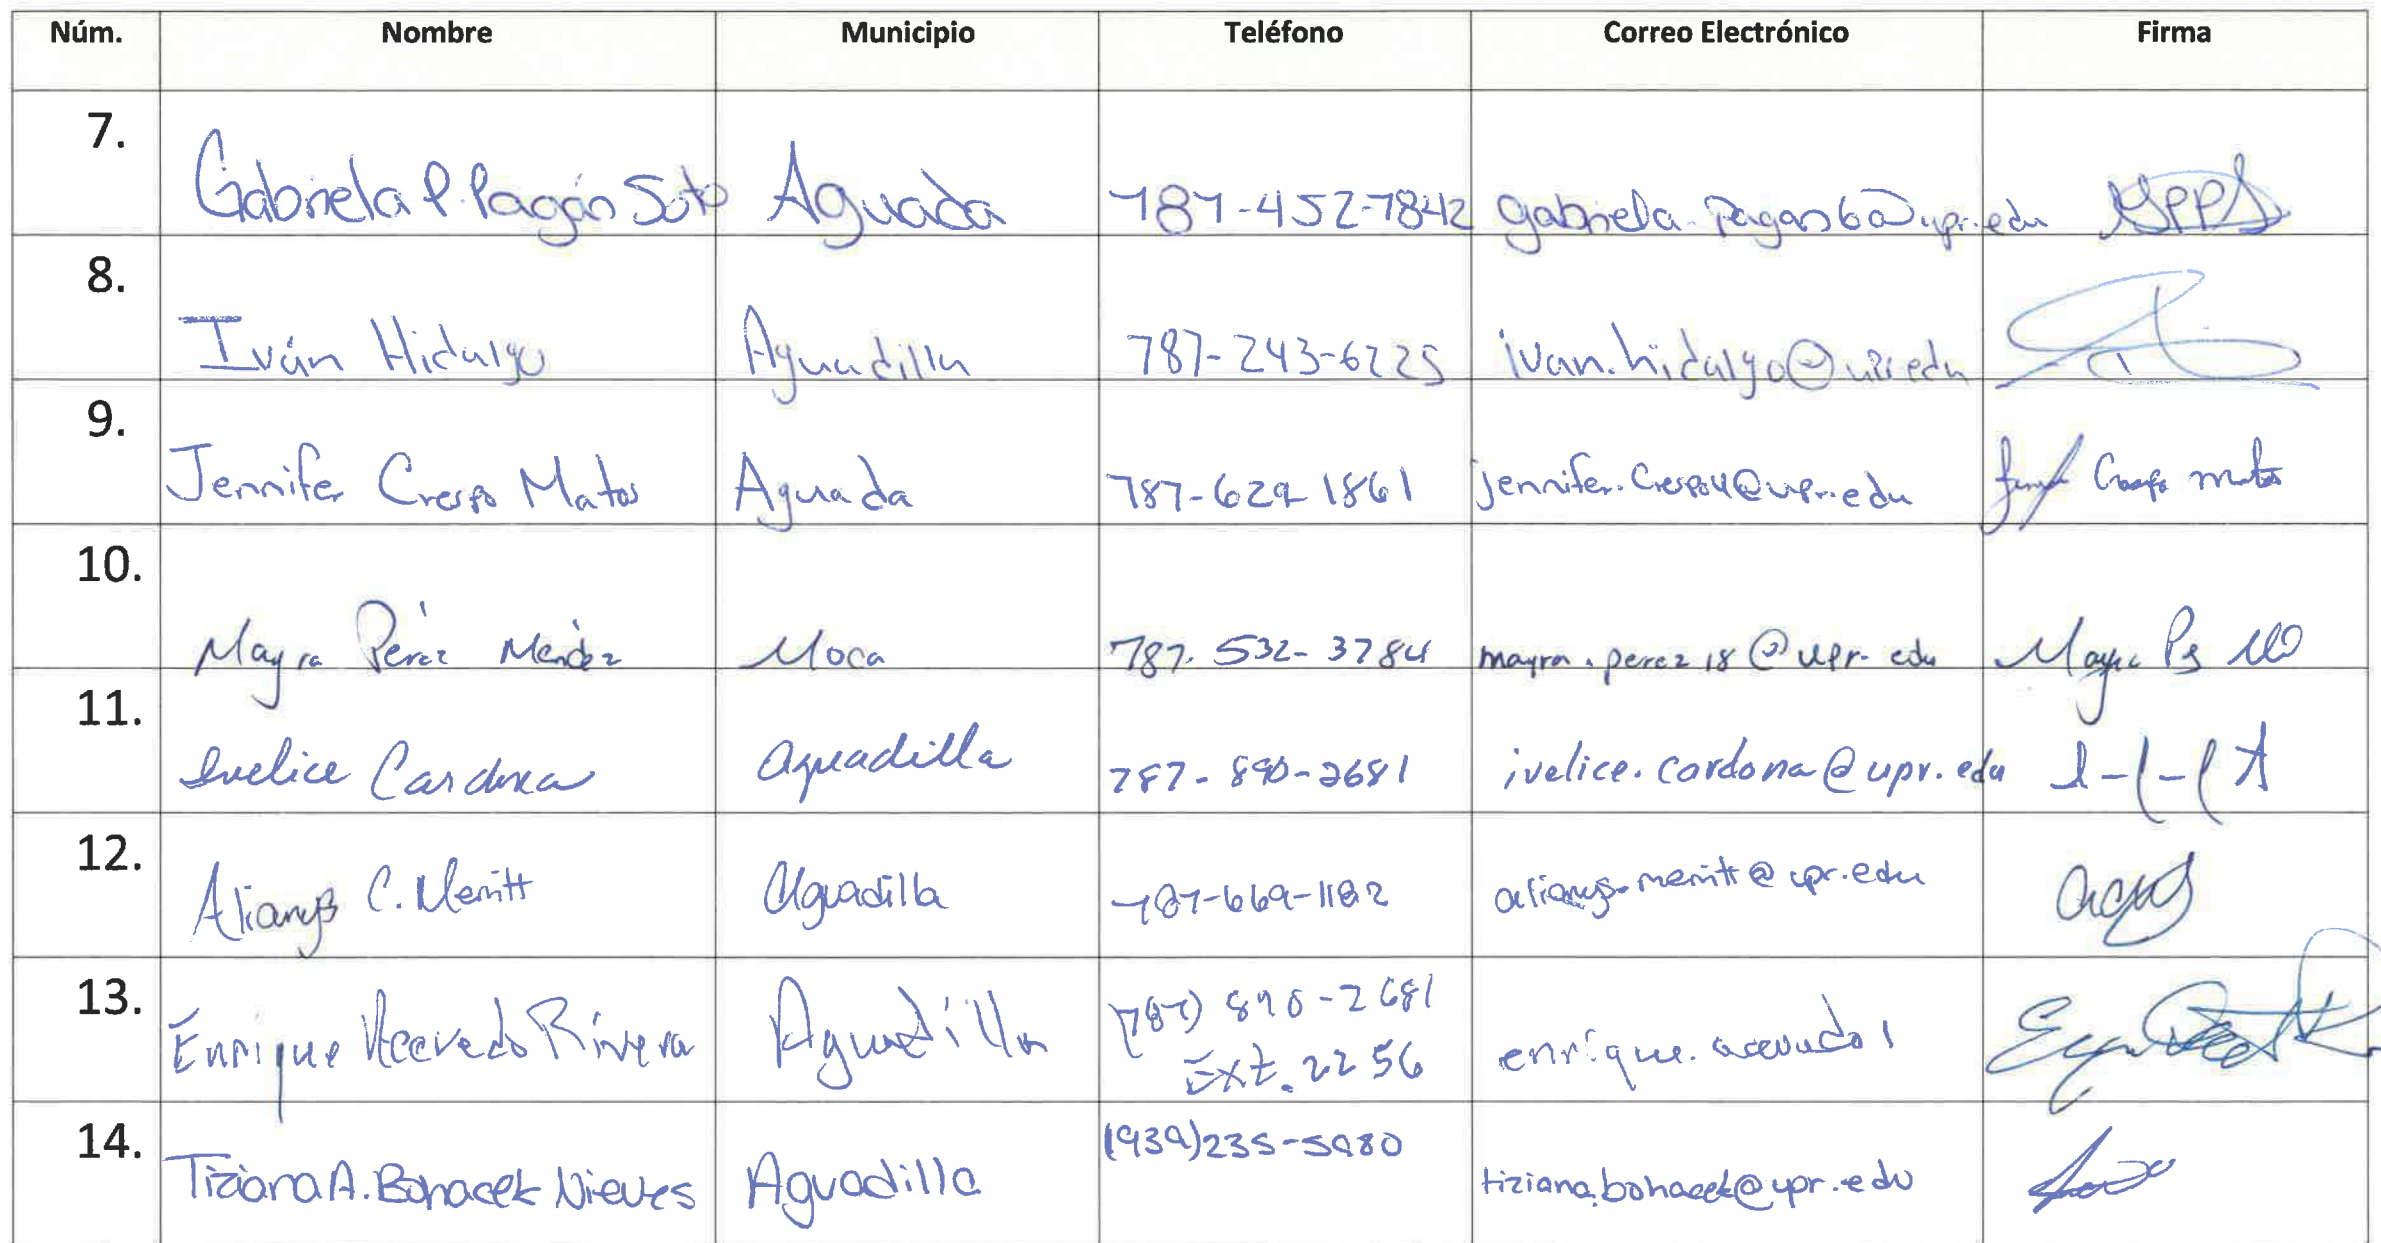 Núm. Nombre Municipio Teléfono Correo Electrónico Firma
7. Gabriela P. Pagán Soto Aguada 787-452-7842 gabriela.pagan36@upr.edu GPPS
8. Iván Hidalgo Aguadilla 787-243-6225 ivan.hidalgo@upr.edu
9. Jennifer Crespo Matos Aguada 787-629-1861 jennifer.crespo4@upr.edu Crespo Matos
10. Mayra Pérez Méndez Moca 787-532-3784 mayra.perez18@upr.edu Mayra
11. Ivelice Cardona Aguadilla 787-890-2681 ivelice.cardona@upr.edu
12. Alianys C. Merritt Aguadilla 787-669-1182 alianys.merritt@upr.edu
13. Enrique Acevedo Rivera Aguadilla (787) 890-2681
Ext. 2256 enrique.acevedo1
14. Tiziana A. Bohacek Nieves Aguadilla (939)235-5980 tiziana.bohacek@upr.edu